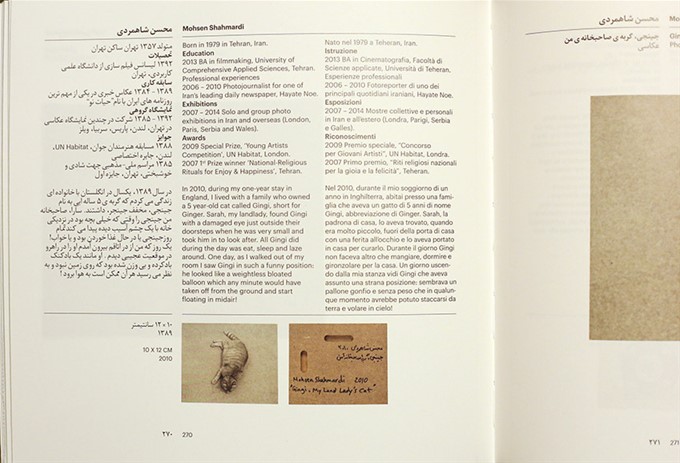 محسن شاهمردی
متولد ۱۳۵۷ تهران ساکن تهران
تحصیلات
۱۳۹۲ لیسانس فیلم سازی از دانشگاه علمی
کاربردی، تهران
سابقه کاری
۱۳۸۹ - ۱۳۸۴ عکاس خبری در یکی از مهم ترین
روزنامه های ایران با نام "حیات نو"
نمایشگاه گروهی
۱۳۹۲ - ۱۳۸۵ شرکت در چندین نمایشگاه عکاسی
در تهران، لندن، پاریس، سربیا، ویلز
جوایز
۱۳۸۸ مسابقه هنرمندان جوان، UN Habitat،
لندن، جایزه اختصاصی
۱۳۸۵ مراسم ملی-مذهبی جهت شادی و
خوشبختی، تهران، جایزه اول
در سال ۱۳۸۹، یکسال در انگلستان با خانواده ای
زندگی می کردم که گربه ی ۵ ساله ایی به نام
جینجی، مخفف جینجر، داشتند. سارا، صاحبخانه
من جینجی را وقتی که خیلی بچه بود در نزدیکی
خانه با یک چشم آسیب دیده پیدا می کند. تمام
روز جینجی یا در حال غذا خوردن بود و یا خواب!
یک روز که من از در اتاقم بیرون آمدم او را در راهرو
در موقعیت عجیبی دیدم. او مانند یک بادکنک
باد کرده و بی وزن شده بود که روی زمین نبود و به
نظر می رسید هر آن ممکن است به هوا برود!
۱۰ × ۱۲ سانتیمتر
۱۳۸۹
10 X 12 CM
2010
Mohsen Shahmardi
Born in 1979 in Tehran, Iran.
Education
2013 BA in filmmaking, University of
Comprehensive Applied Sciences, Tehran.
Professional experiences
2006 – 2010 Photojournalist for one of
Iran's leading daily newspaper, Hayate Noe.
Exhibitions
2007 – 2014 Solo and group photo
exhibitions in Iran and overseas (London,
Paris, Serbia and Wales).
Awards
2009 Special Prize, 'Young Artists
Competition', UN Habitat, London.
2007 1st Prize winner 'National-Religious
Rituals for Enjoy & Happiness', Tehran.
In 2010, during my one-year stay in
England, I lived with a family who owned
a 5 year-old cat called Gingi, short for
Ginger. Sarah, my landlady, found Gingi
with a damaged eye just outside their
doorsteps when he was very small and
took him in to look after. All Gingi did
during the day was eat, sleep and laze
around. One day, as I walked out of my
room I saw Gingi in such a funny position:
he looked like a weightless bloated
balloon which any minute would have
taken off from the ground and start
floating in midair!
Nato nel 1979 a Teheran, Iran.
Istruzione
2013 BA in Cinematografia, Facoltà di
Scienze applicate, Università di Teheran.
Esperienze professionali
2006 – 2010 Fotoreporter di uno dei
principali quotidiani iraniani, Hayate Noe.
Esposizioni
2007 – 2014 Mostre collettive e personali
in Iran e all'estero (Londra, Parigi, Serbia
e Galles).
Riconoscimenti
2009 Premio speciale, "Concorso
per Giovani Artisti", UN Habitat, Londra.
2007 Primo premio, "Riti religiosi nazionali
per la gioia e la felicità", Teheran.
Nel 2010, durante il mio soggiorno di un
anno in Inghilterra, abitai presso una fami-
glia che aveva un gatto di 5 anni di nome
Gingi, abbreviazione di Ginger. Sarah, la
padrona di casa, lo aveva trovato, quando
era molto piccolo, fuori della porta di casa
con una ferita all'occhio e lo aveva portato
in casa per curarlo. Durante il giorno Gingi
non faceva altro che mangiare, dormire e
gironzolare per la casa. Un giorno uscen-
do dalla mia stanza vidi Gingi che aveva
assunto una strana posizione: sembrava un
pallone gonfio e senza peso che in qualun-
que momento avrebbe potuto staccarsi da
terra e volare in cielo!
محسن شاهمردی
Mohsen Shahmardi 2010
"Gingi, My Land Lady's Cat"
۲۷۰ 270
محسن شاهمردی
جینجی، گربه ی صاحبخانه ی من
عکاسی
۲۷۱ 271